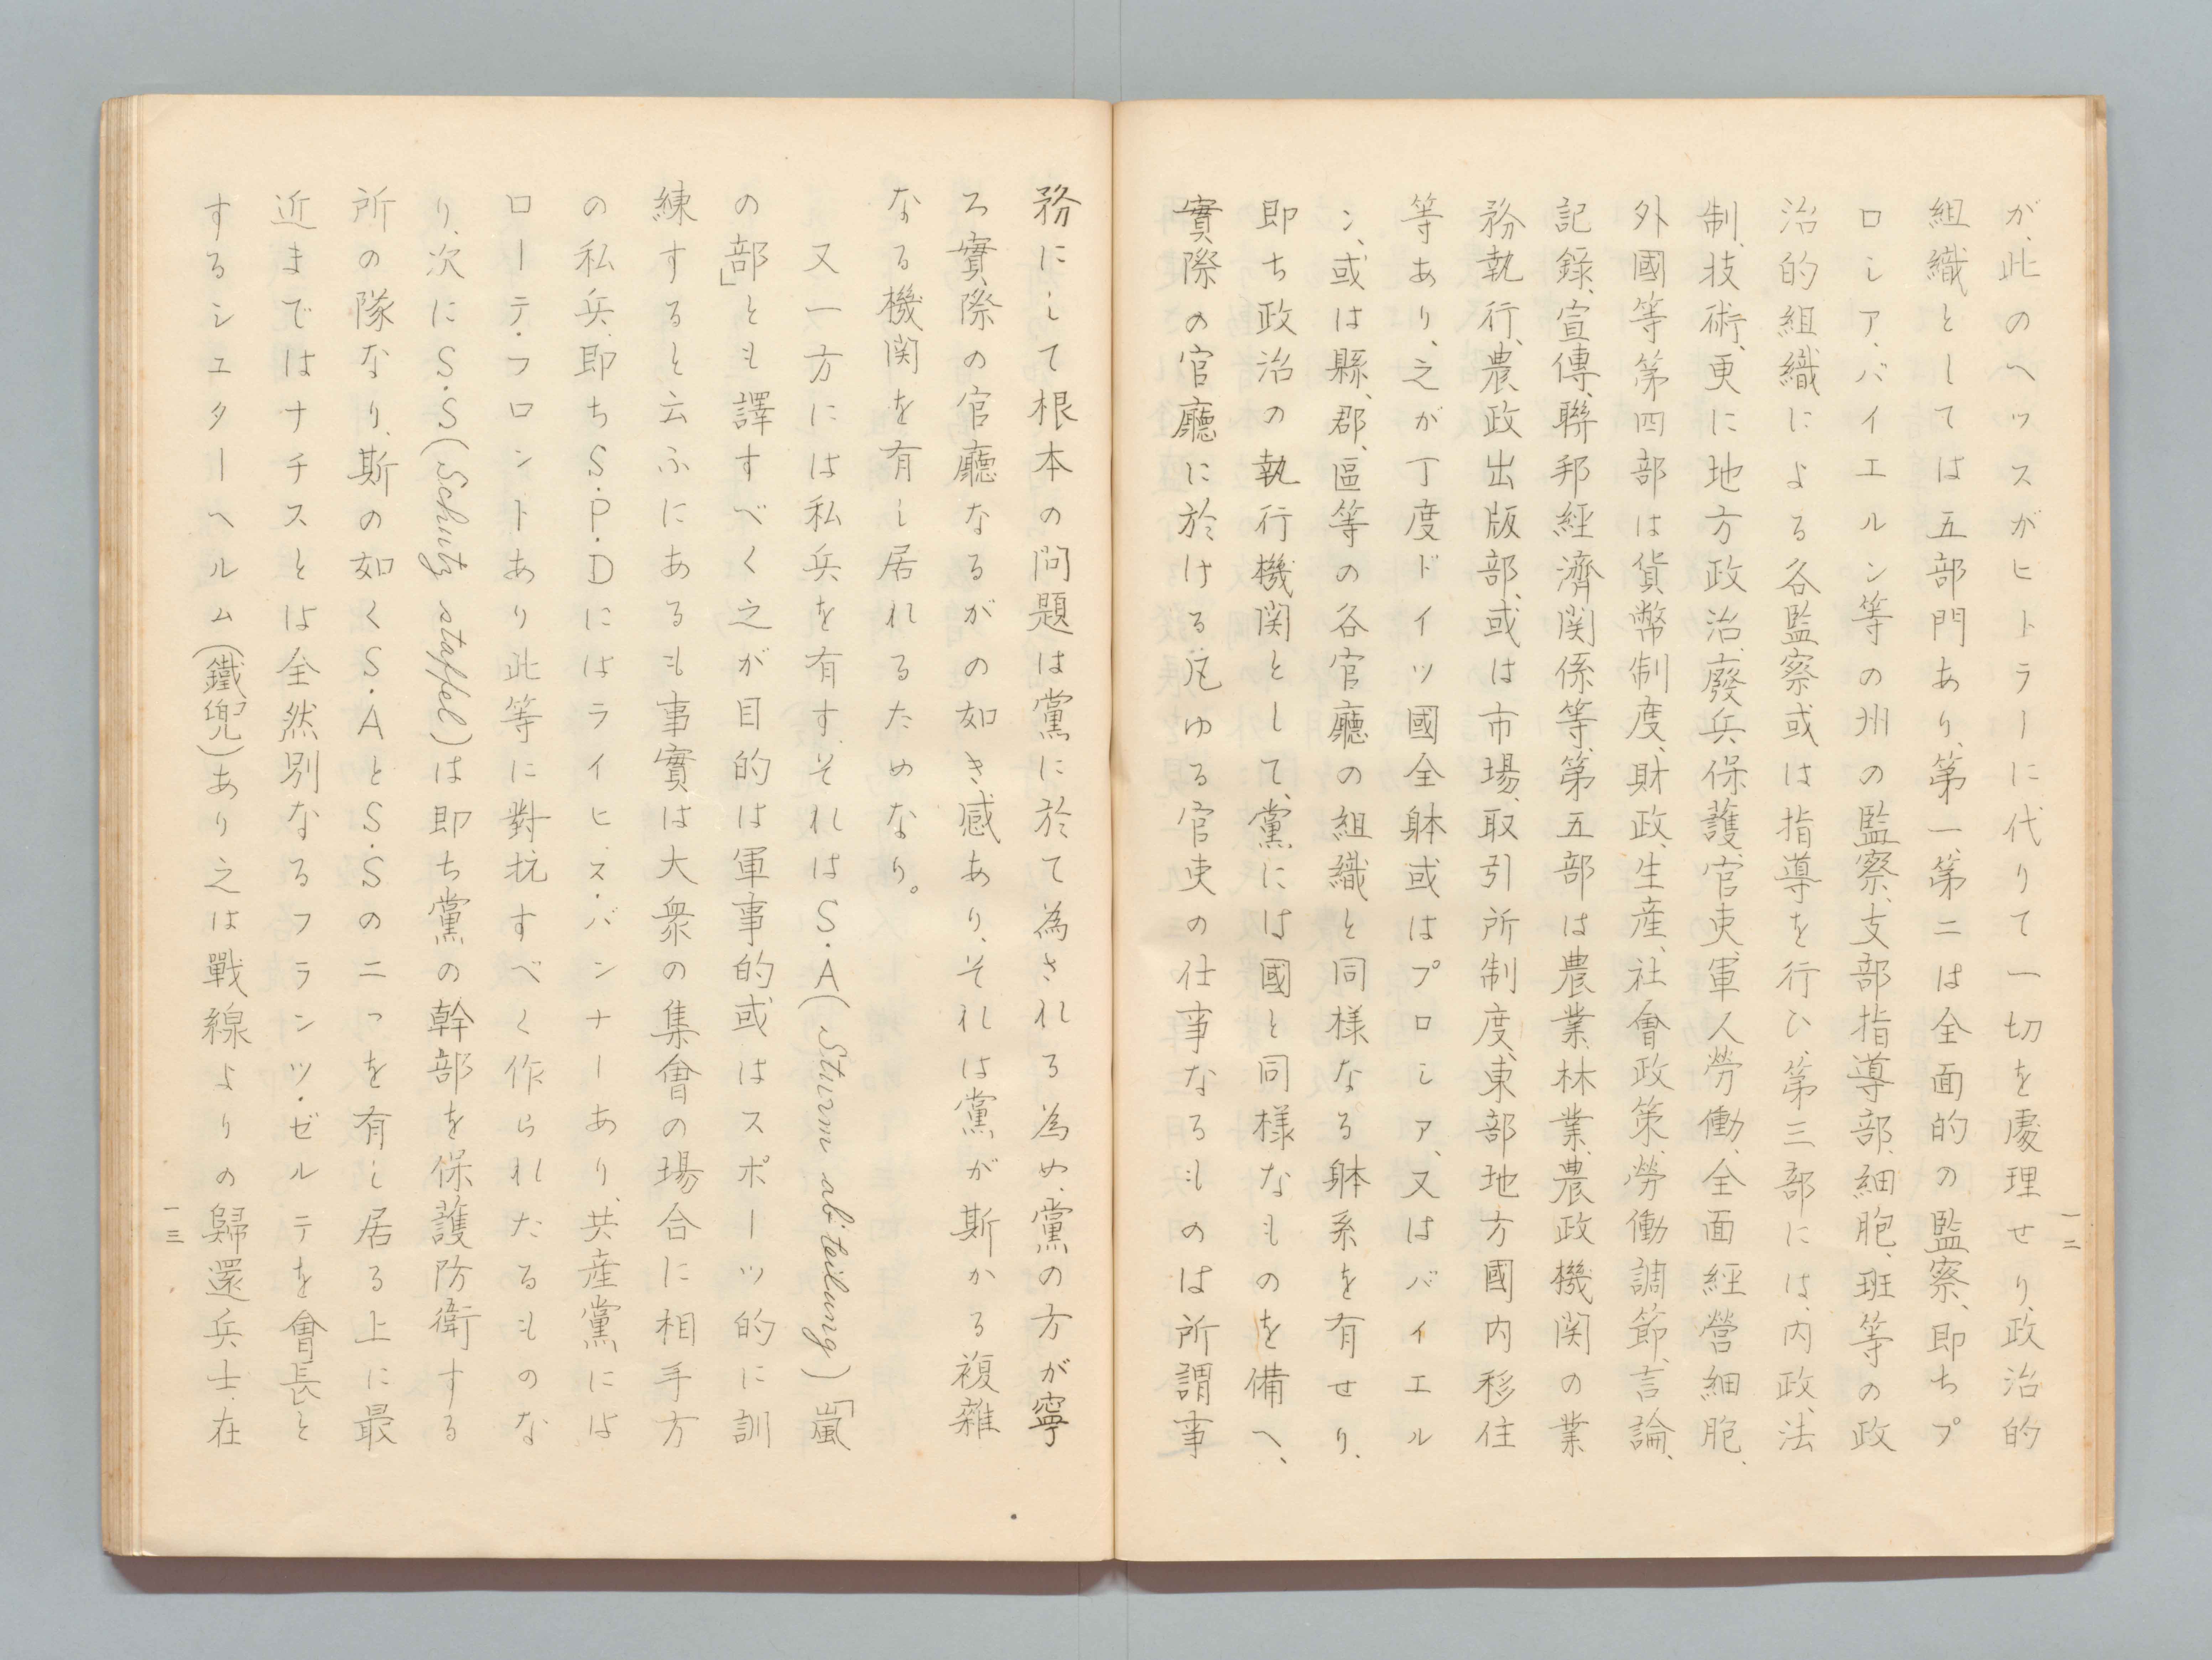 一二
が、此のヘッスがヒトラーに代りて一切を處理せり、政治的
組織としては五部門あり、第一、第二は全面的の監察、即ちプ
ロシア・バイエルン等の州の監察、支部指導部、細胞、班等の政
治的組織による各監察或は指導を行ひ、第三部には、内政、法
制、技術、更に地方政治、廢兵保護、官吏、軍人、勞働、全面經營細胞、
外國等第四部は貨幣制度、財政、生産、社會政策、勞働調節、言論、
記錄、宣傳、聯邦經濟関係等、第五部は農業、林業、農政機関の業
務執行、農政出版部、或は市場、取引所制度、東部地方國内移住
等あり、之が丁度ドイツ國全躰或はプロシア、又はバイエル
ン、或は縣、郡、區等の各官廳の組織と同様なる躰系を有せり、
即ち政治の執行機関として、黨には國と同様なものを備へ、
實際の官廳に於ける凡ゆる官吏の仕事なるものは所謂事
務にして根本の問題は黨に於て為される為め、黨の方が寧
ろ實際の官廳なるがの如き感あり、それは黨が斯かる複雜
なる機関を有し居れるためなり。
又一方には私兵を有す、それはS・A(Sturm abteilung)「嵐
の部」とも譯すべく之が目的は軍事的或はスポーツ的に訓
練すると云ふにあるも事實は大衆の集會の場合に相手方
の私兵、即ちS・P・Dにはライヒスバンナーあり、共産黨には
ローテ・フロントあり此等に對抗すべく作られたるものな
り、次にS・S(Schutz staffel)は即ち黨の幹部を保護防衛する
所の隊なり、斯の如くS・AとS・Sの二つを有し居る上に最
近まではナチスとは全然別なるフランツ・ゼルテを會長と
するシュターヘルム(鐵兜)あり之は戰線よりの歸還兵士、在
一三